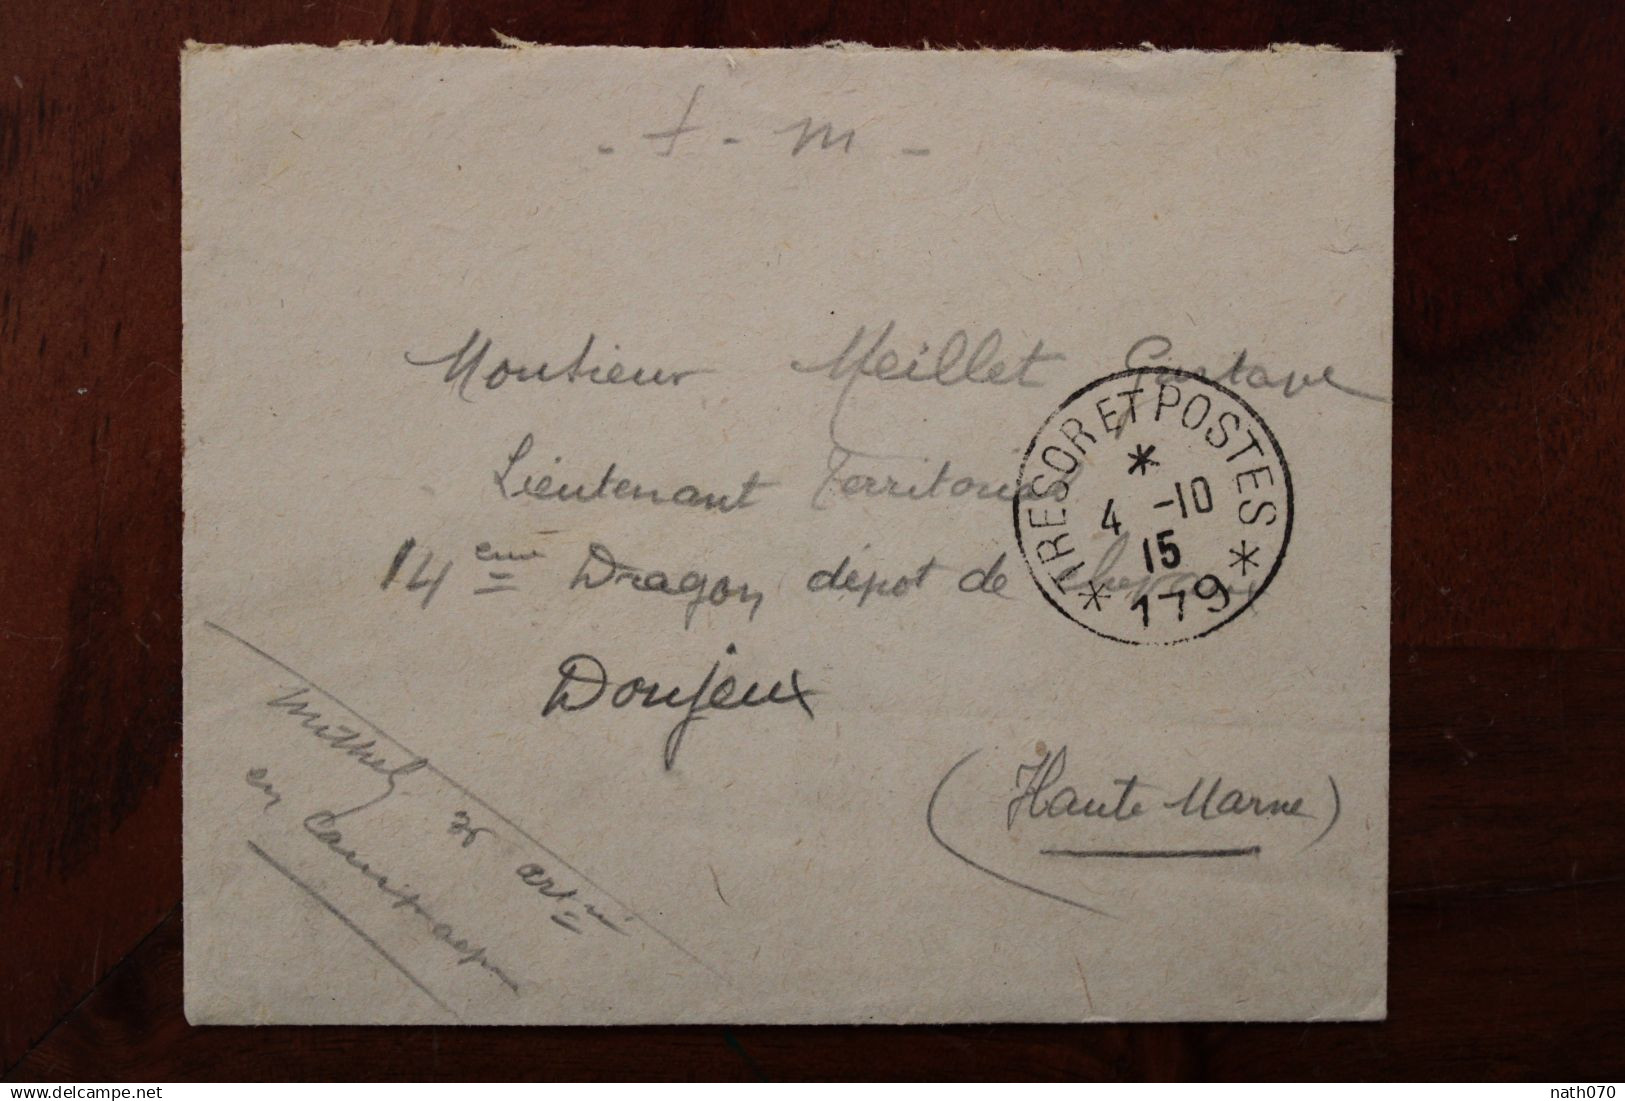 - F - M -
Monsieur Meillet Gustave
Lieutenant Territorial
14eme Dragon dépot de
Donjeux
(Haute Marne)
TRESOR ET POSTES
*
4 -10
15
* 179 *
en Campagne
nath070